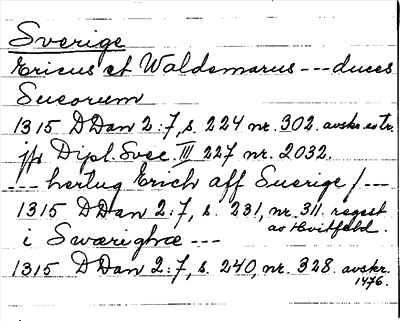 Sverige
Ericus et Waldemarus --- duces
Sueorum
1315 DDan 2:7, s. 224 nr. 302. avskr. extr.
jfr Dipl. Svec III 227 nr. 2032.
--- hertug Erich aff Suerige /---
1315 DDan 2:7, s. 231, nr. 311. regest
av Hvitfeld.
i Swærighæ ---
1315 DDan 2:7, s. 240, nr. 328. avskr.
1476.